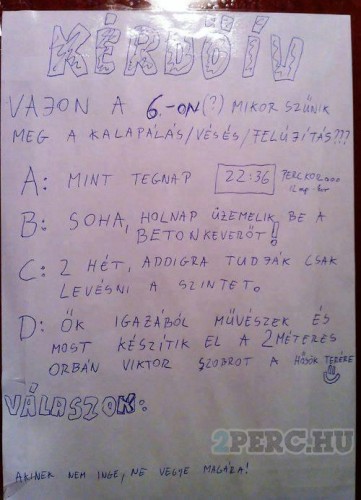 KÉRDŐÍV
VAJON A 6.-ON(?) MIKOR SZŰNIK
MEG A KALAPÁLÁS/VÉSÉS/FELÚJÍTÁS???
A: MINT TEGNAP 22:36 PERCKOR...
B: SOHA, HOLNAP ÜZEMELIK BE A
BETONKEVERŐT!
C: 2 HÉT, ADDIGRA TUDJÁK CSAK
LEVÉSNI A SZINTET.
D: ŐK IGAZÁBÓL MŰVÉSZEK ÉS
MOST KÉSZÍTIK EL A 2MÉTERES
ORBÁN VIKTOR SZOBROT A HŐSÖK TERÉRE
VÁLASZOK:
2PERC.HU
AKINEK NEM INGE, NE VEGYE MAGÁRA!